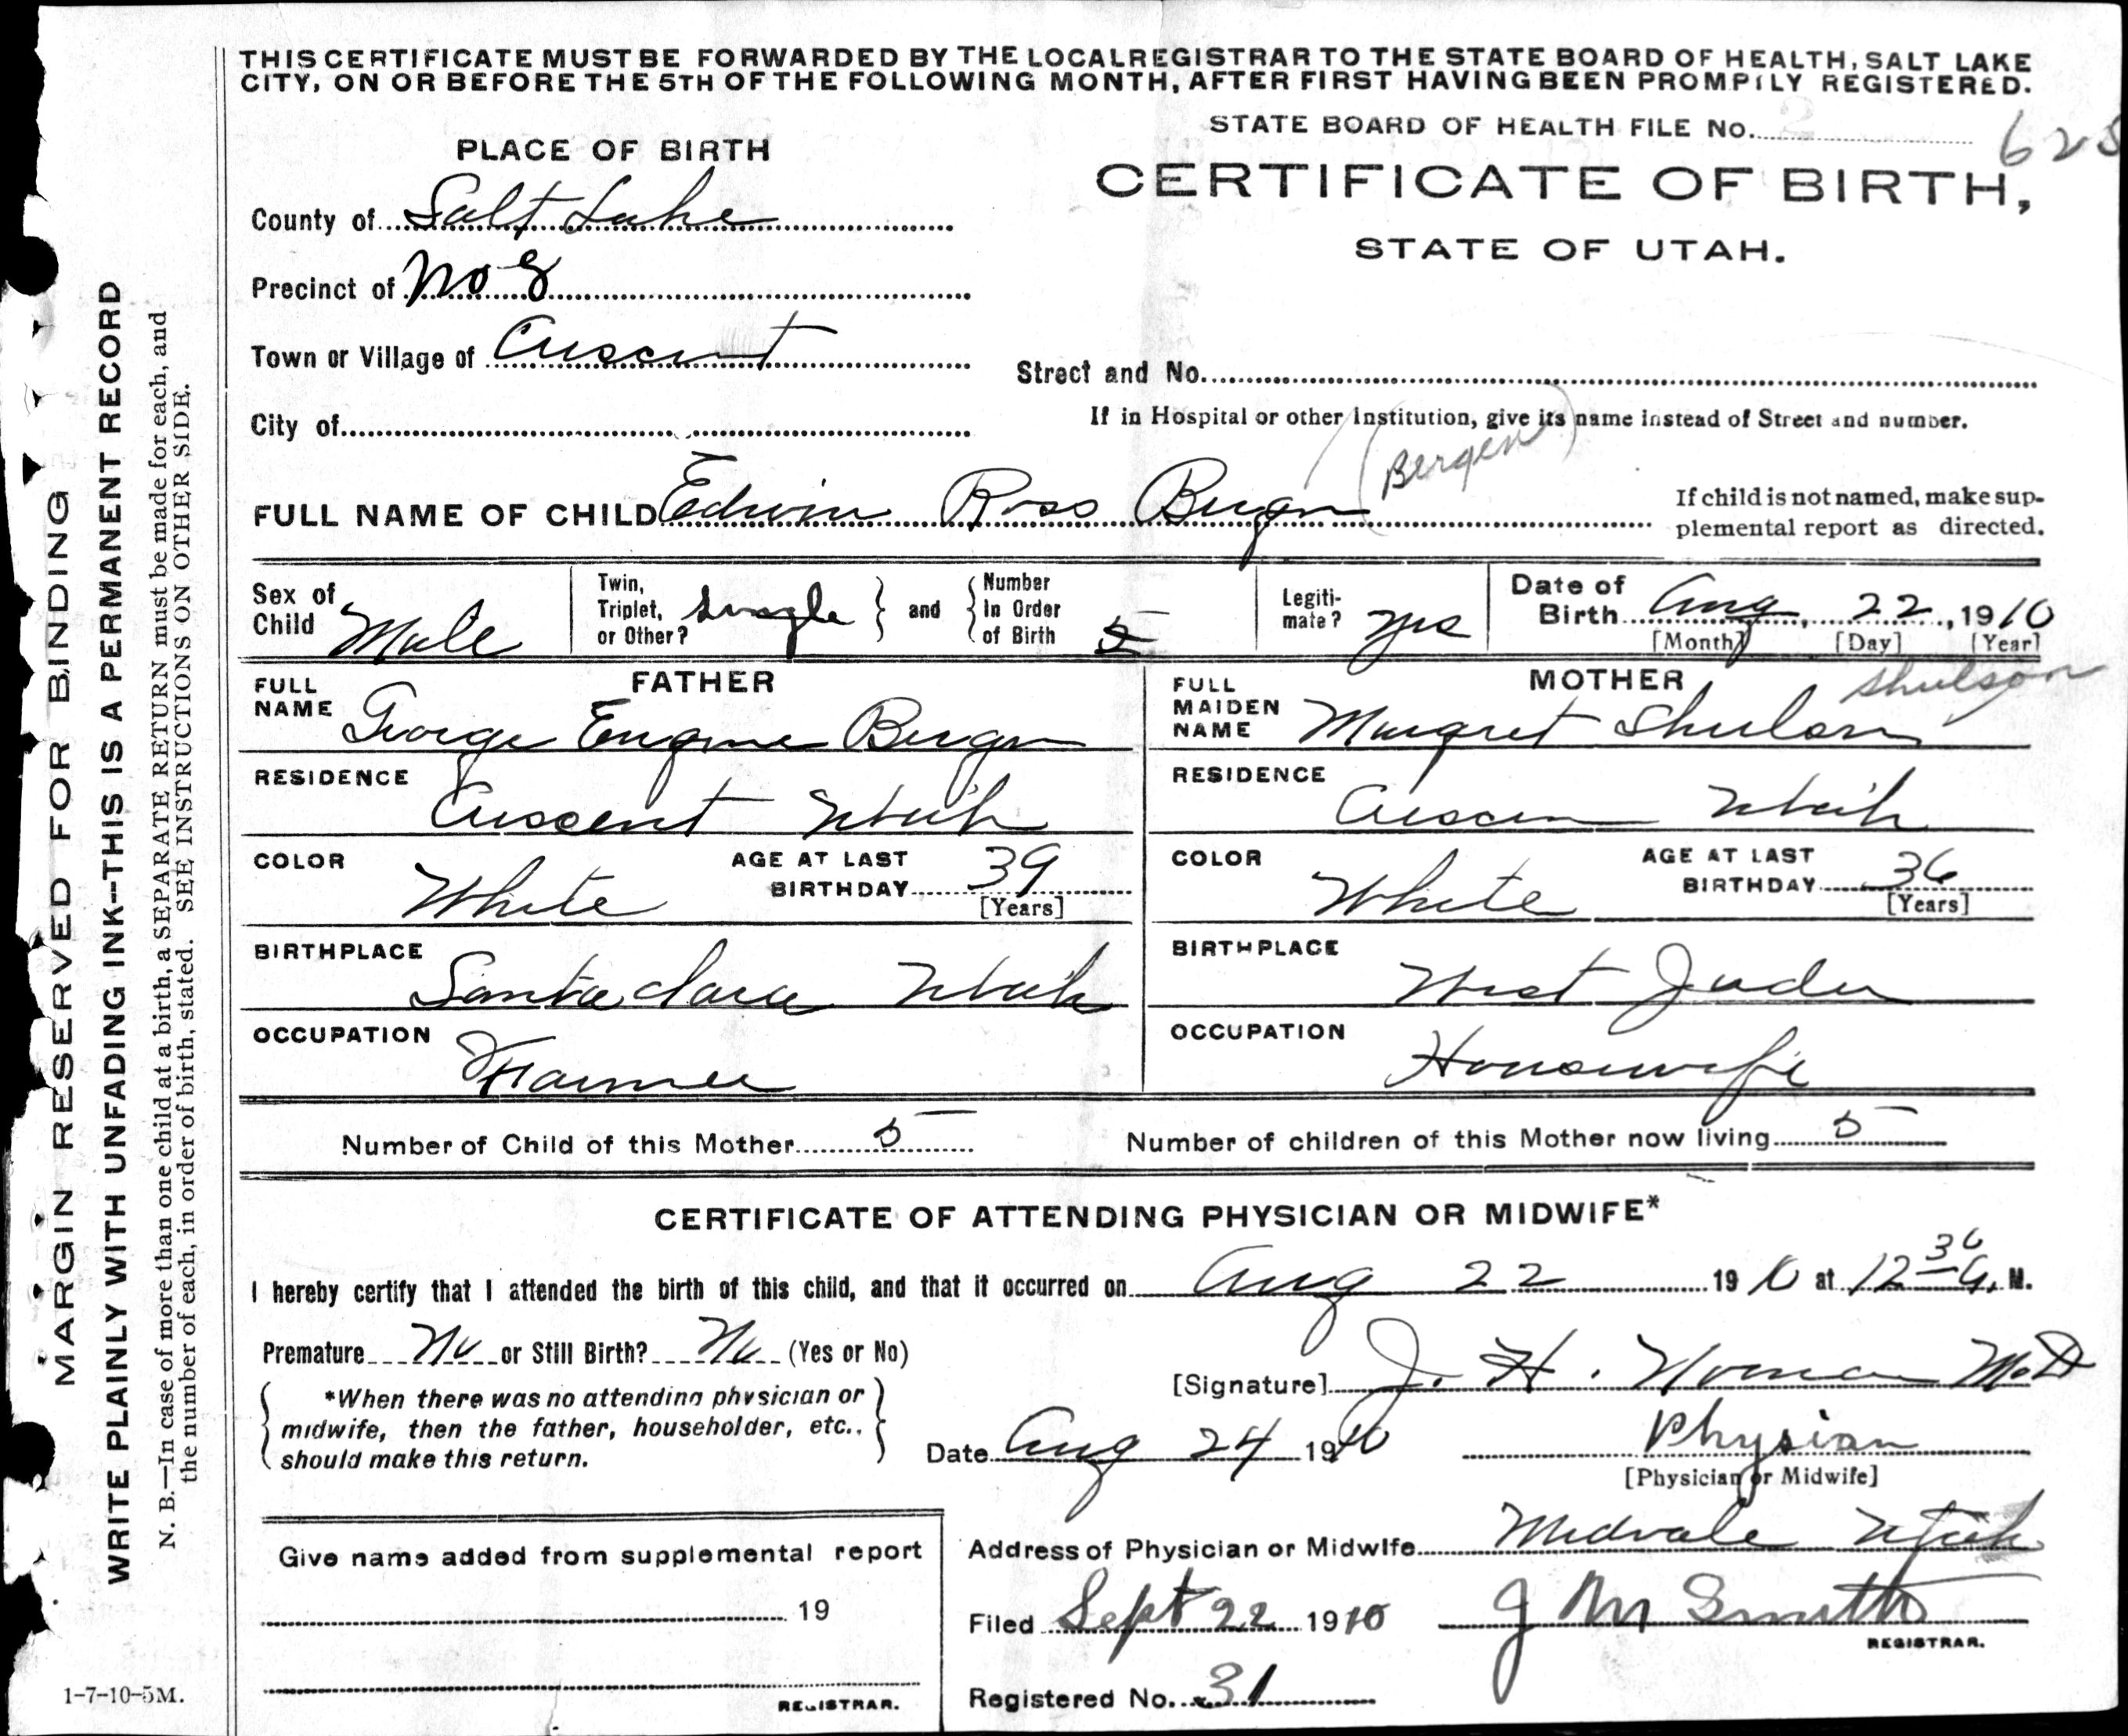 THIS CERTIFICATE MUST BE FORWARDED BY THE LOCAL REGISTRAR TO THE STATE BOARD OF HEALTH, SALT LAKE
CITY, ON OR BEFORE THE 5TH OF THE FOLLOWING MONTH, AFTER FIRST HAVING BEEN PROMPILY REGISTERED.
STATE BOARD OF HEALTH FILE No. 628
PLACE OF BIRTH
CERTIFICATE OF BIRTH,
STATE OF UTAH.
County of Salt Lake
Precinct of No 8
Town or Village of Crescent
Street and No.
City of
If in Hospital or other Institution, give its name instead of Street and number.
(Bergen)
FULL NAME OF CHILD Edwin Ross Bergen
If child is not named, make sup-
plemental report as directed.
Sex of Child Male
Twin, Triplet, or Other? Single } and { Number In Order of Birth 5
Legiti-mate? Yes
Date of Birth Aug 22, 1910
[Month] [Day] [Year]
FATHER
FULL NAME George Eugene Bergen
RESIDENCE Crescent Utah
COLOR White
AGE AT LAST BIRTHDAY 39
[Years]
BIRTHPLACE Santa Clara Utah
OCCUPATION Farmer
MOTHER
Shulson
FULL MAIDEN NAME Margret Shulson
RESIDENCE Crescent Utah
COLOR White
AGE AT LAST BIRTHDAY 36
[Years]
BIRTHPLACE West Jordan
OCCUPATION Housewife
Number of Child of this Mother 5
Number of children of this Mother now living 5
CERTIFICATE OF ATTENDING PHYSICIAN OR MIDWIFE*
I hereby certify that I attended the birth of this child, and that it occurred on Aug 22 1910 at 12 30 A. M.
Premature No or Still Birth? No (Yes or No)
*When there was no attending physician or
midwife, then the father, householder, etc.,
should make this return.
[Signature] J. H. M.D
Date Aug 24 1910
Physian
[Physician or Midwife]
Give name added from supplemental report
19
REGISTRAR.
Address of Physician or Midwife Midvale Utah
Filed Sept 22 1910
J M Smith
REGISTRAR.
Registered No. 31
1-7-10-5M.
MARGIN RESERVED FOR BINDING
WRITE PLAINLY WITH UNFADING INK--THIS IS A PERMANENT RECORD
N. B.—In case of more than one child at a birth, a SEPARATE RETURN must be made for each, and
the number of each, in order of birth, stated. SEE INSTRUCTIONS ON OTHER SIDE.